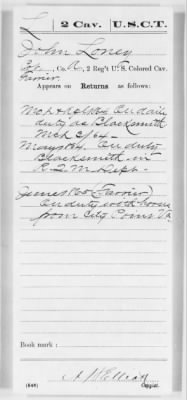 L 2 Cav. U.S.C.T.
John Loney
Co. A, 2 Reg't U. S. Colored Cav.
Farrier.
Appears on Returns as follows:
Mch & Apl 64 On daily
duty as Blacksmith
Mch 3/64
May 64. On duty
Blacksmith in
Q. M. Dept.
June 65 (Farrier)
On duty with horses
from City Point Va
Book mark:
(646)
Copyist.